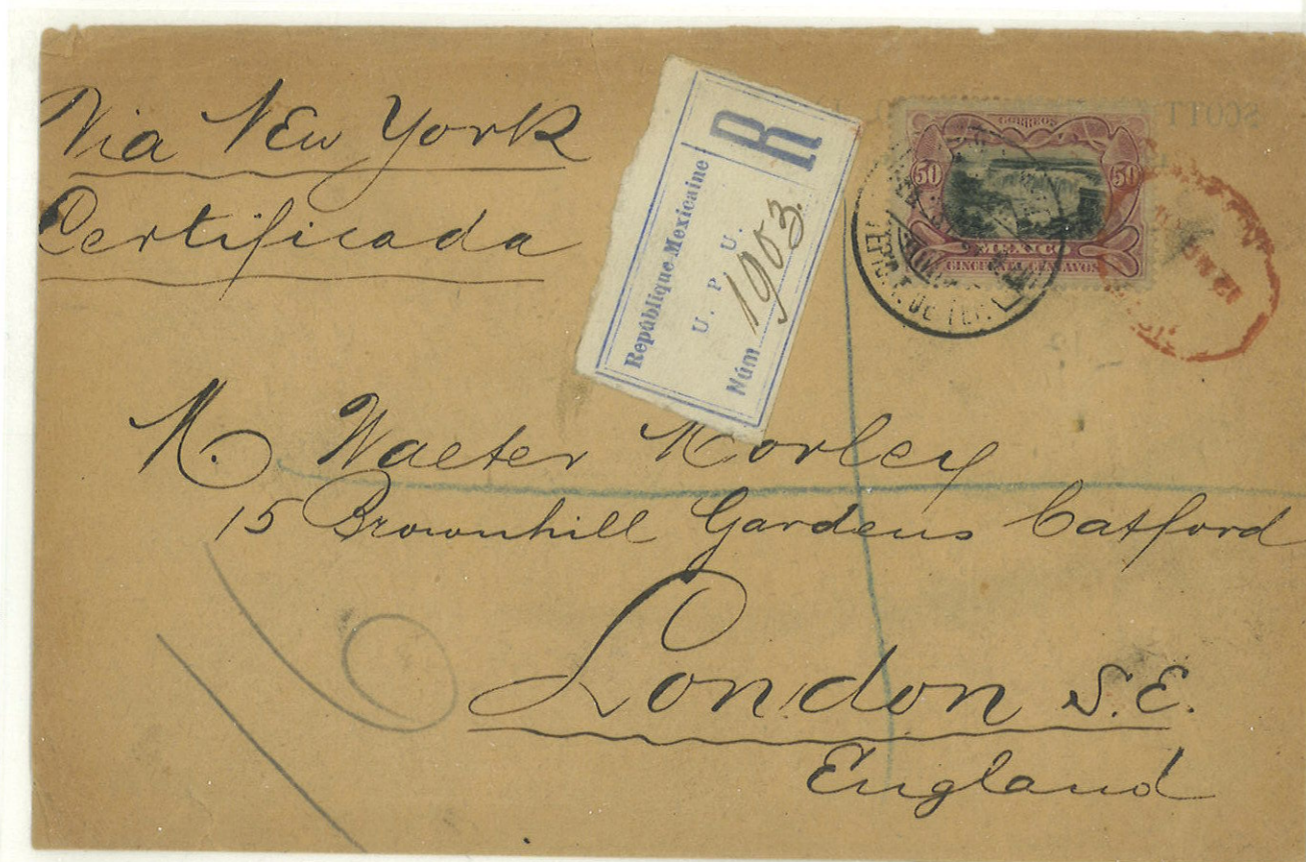 Via New York
Certificada
R
République Mexicaine
U. P. U.
Núm 1903.
SCOTT
CORREOS
50 50
MEXICO
CINCUENTA CENTAVOS
M. Walter Morley
15 Brownhill Gardens Catford
London S.E.
England